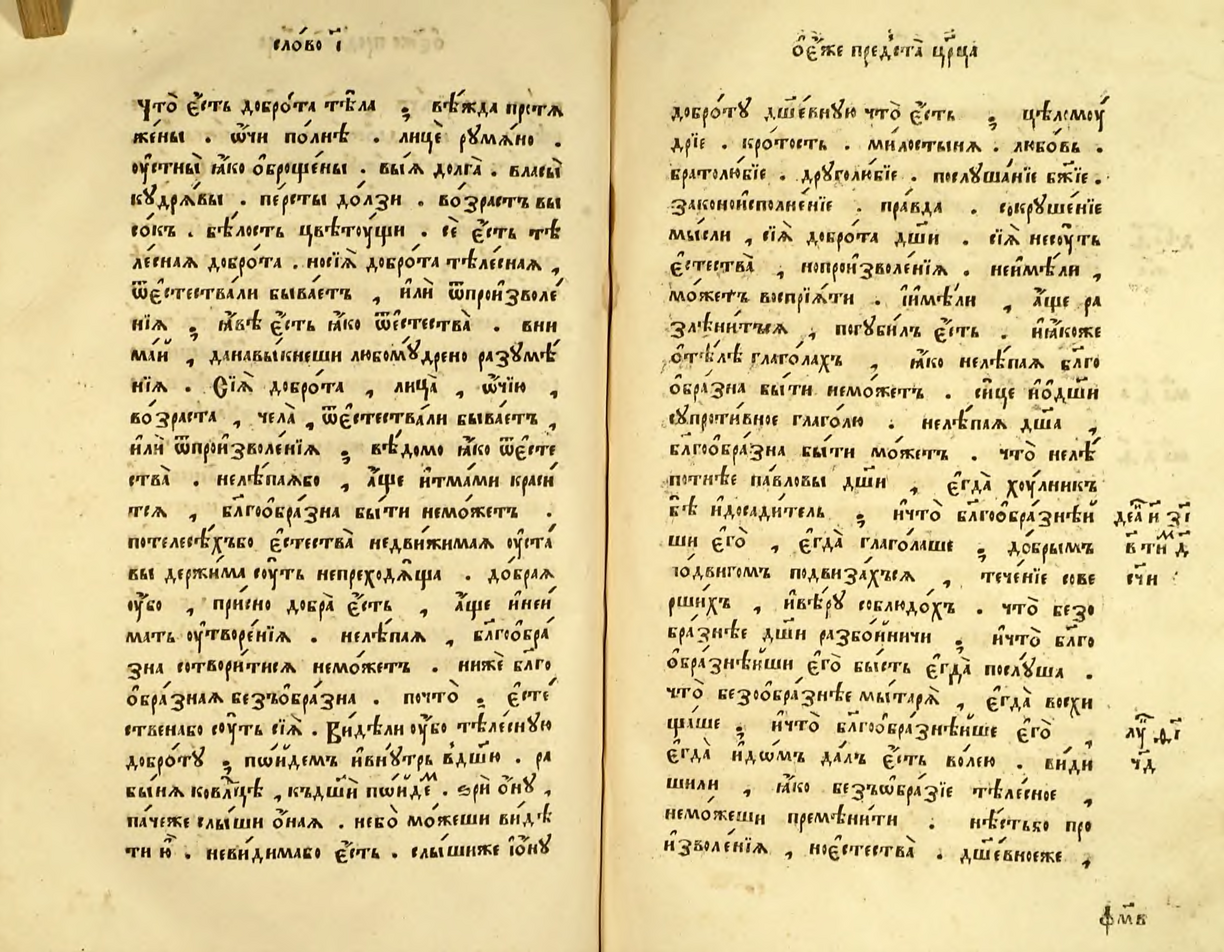 сло́во і҃
Что̀ є҆́сть добро́та тѣ́ла ; вѣ́жда протѧ
же́ны . ѡ҆́чи по́лнѣ . лицѐ рꙋмѧ́но .
оу҆стны̀ ꙗ҆́ко ѻ҆броще́ны . вы́ѧ долга̀ . власы̀
кꙋдрѧ́вы . пе́рсты до́лзи . во́зрастъ вы
со́къ . бѣ́лость цвѣтоу́щи . сѐ є҆́сть тѣ
ле́снаѧ добро́та . носїѧ̀ добро́та тѣле́снаѧ ,
ѿє҆стества́ли быва́етъ , и҆лѝ ѿпрои҆зволе́
нїѧ ; ꙗ҆́вѣ є҆́сть ꙗ҆́ко ѿє҆стества̀ . вни
ма́й , данавы́кнеши любомꙋ́дрено разꙋмѣ́
нїѧ . Сїѧ̀ добро́та , лица̀ , ѡ҆́чїю ,
во́зраста , чела̀ , ѿє҆стества́ли быва́етъ ,
и҆лѝ ѿпрои҆зволе́нїѧ ; вѣ́домо ꙗ҆́ко ѿє҆сте
ства̀ . нелѣ́паѧбо , а҆́ще и҆тма́ми краси́
тсѧ , бл҃гоѻ҆бра́зна бы́ти немо́жетъ .
потеле́сѣхъбо є҆стества̀ недви́жимаѧ оу҆ста́
вы держи́ма соу́ть непреходѧ́ща . до́браѧ
оу҆́бо , при́сно добра̀ є҆́сть , а҆́ще и҆неи́
мать оу҆творе́нїѧ . нелѣ́паѧ , бл҃гоѻ҆бра́
зна сотвори́тисѧ немо́жетъ . ниже́ бл҃го
ѻ҆бра́знаѧ безъѻ҆бра́зна . почто̀ ; є҆сте́
ственабо соу́ть сїѧ̀ . Ви́дѣли оу҆́бо тѣле́снꙋю
добро́тꙋ ; пѡи́демъ и҆внꙋ́трь вдш҃ю . ра
бы́нѧ ковл҃цѣ , къдш҃и пѡи́демъ . ѕрѝ ѻ҆́нꙋ ,
па́чеже слы́ши ѻ҆́наѧ . небо̀ мо́жеши ви́дѣ
ти ю҆̀ . неви́димабо є҆́сть . слы́шиже і҆ѻ҆́нꙋ
ѻ҆є҆́же предста̀ цр҃ца
добро́тꙋ дш҃е́внꙋю что̀ є҆́сть ; цѣломоу́
дрїе . кро́тость . ми́лостынѧ . любо́вь .
братолю́бїе . дрꙋголю́бїе . послꙋша́нїе бж҃їе .
законои҆сполне́нїе . пра́вда . сокрꙋше́нїе
мы́сли , сїѧ̀ добро́та дш҃и . сїѧ̀ несоу́ть
є҆стества̀ , нопрои҆зволе́нїѧ . неи҆мѣ́ли ,
мо́жетъ воспрїѧ́ти . і҆и҆мѣ́ли , а҆́ще ра
злѣни́тъсѧ , погꙋби́лъ є҆́сть . и҆ꙗ҆́коже
ѻ҆тѣ́лѣ глаго́лахъ , ꙗ҆́ко нелѣ́паѧ бл҃го
ѻ҆бра́зна бы́ти немо́жетъ . си́це и҆ѻ҆дш҃и
сꙋпроти́вное глаго́лю . нелѣ́паѧ дш҃а ,
бл҃гоѻ҆бра́зна бы́ти мо́жетъ . что̀ нелѣ́
потнѣе па́вловы дш҃и , є҆гда̀ хоу́лникъ
бѣ̀ и҆досади́тель ; и҆что̀ бл҃гоѻ҆бра́знѣй
ши є҆гѡ̀ , є҆гда̀ глаго́лаше ; до́брымъ
по́двигомъ подвиза́хъсѧ , тече́нїе сове
рши́хъ , и҆вѣ́рꙋ соблюдо́хъ . что̀ безо
бра́знѣе дш҃и разбо́йничи ; и҆что̀ бл҃го
ѻ҆бра́знѣйши є҆гѡ̀ бы́сть є҆гда̀ послꙋ́ша .
что̀ безоѻ҆бра́знѣе мытарѧ̀ , є҆гда̀ восхи
ща́ше ; и҆что̀ бл҃гоѻ҆бра́знѣйше є҆гѡ̀ ,
є҆гда̀ и҆дѡ́мъ да́лъ є҆́сть во́лею . ви́ди
шили , ꙗ҆́ко безъѡбра́зїе тѣле́сное ,
немо́жеши премѣни́ти . нѣ́стьбо про
и҆зволе́нїѧ , ноє҆стества̀ . дш҃е́вноеже ,
деа҃ и҆ зі҃
в҃ тим д҃
сч҃и
лꙋ҃ ді҃
ч҃д
ф҃мв